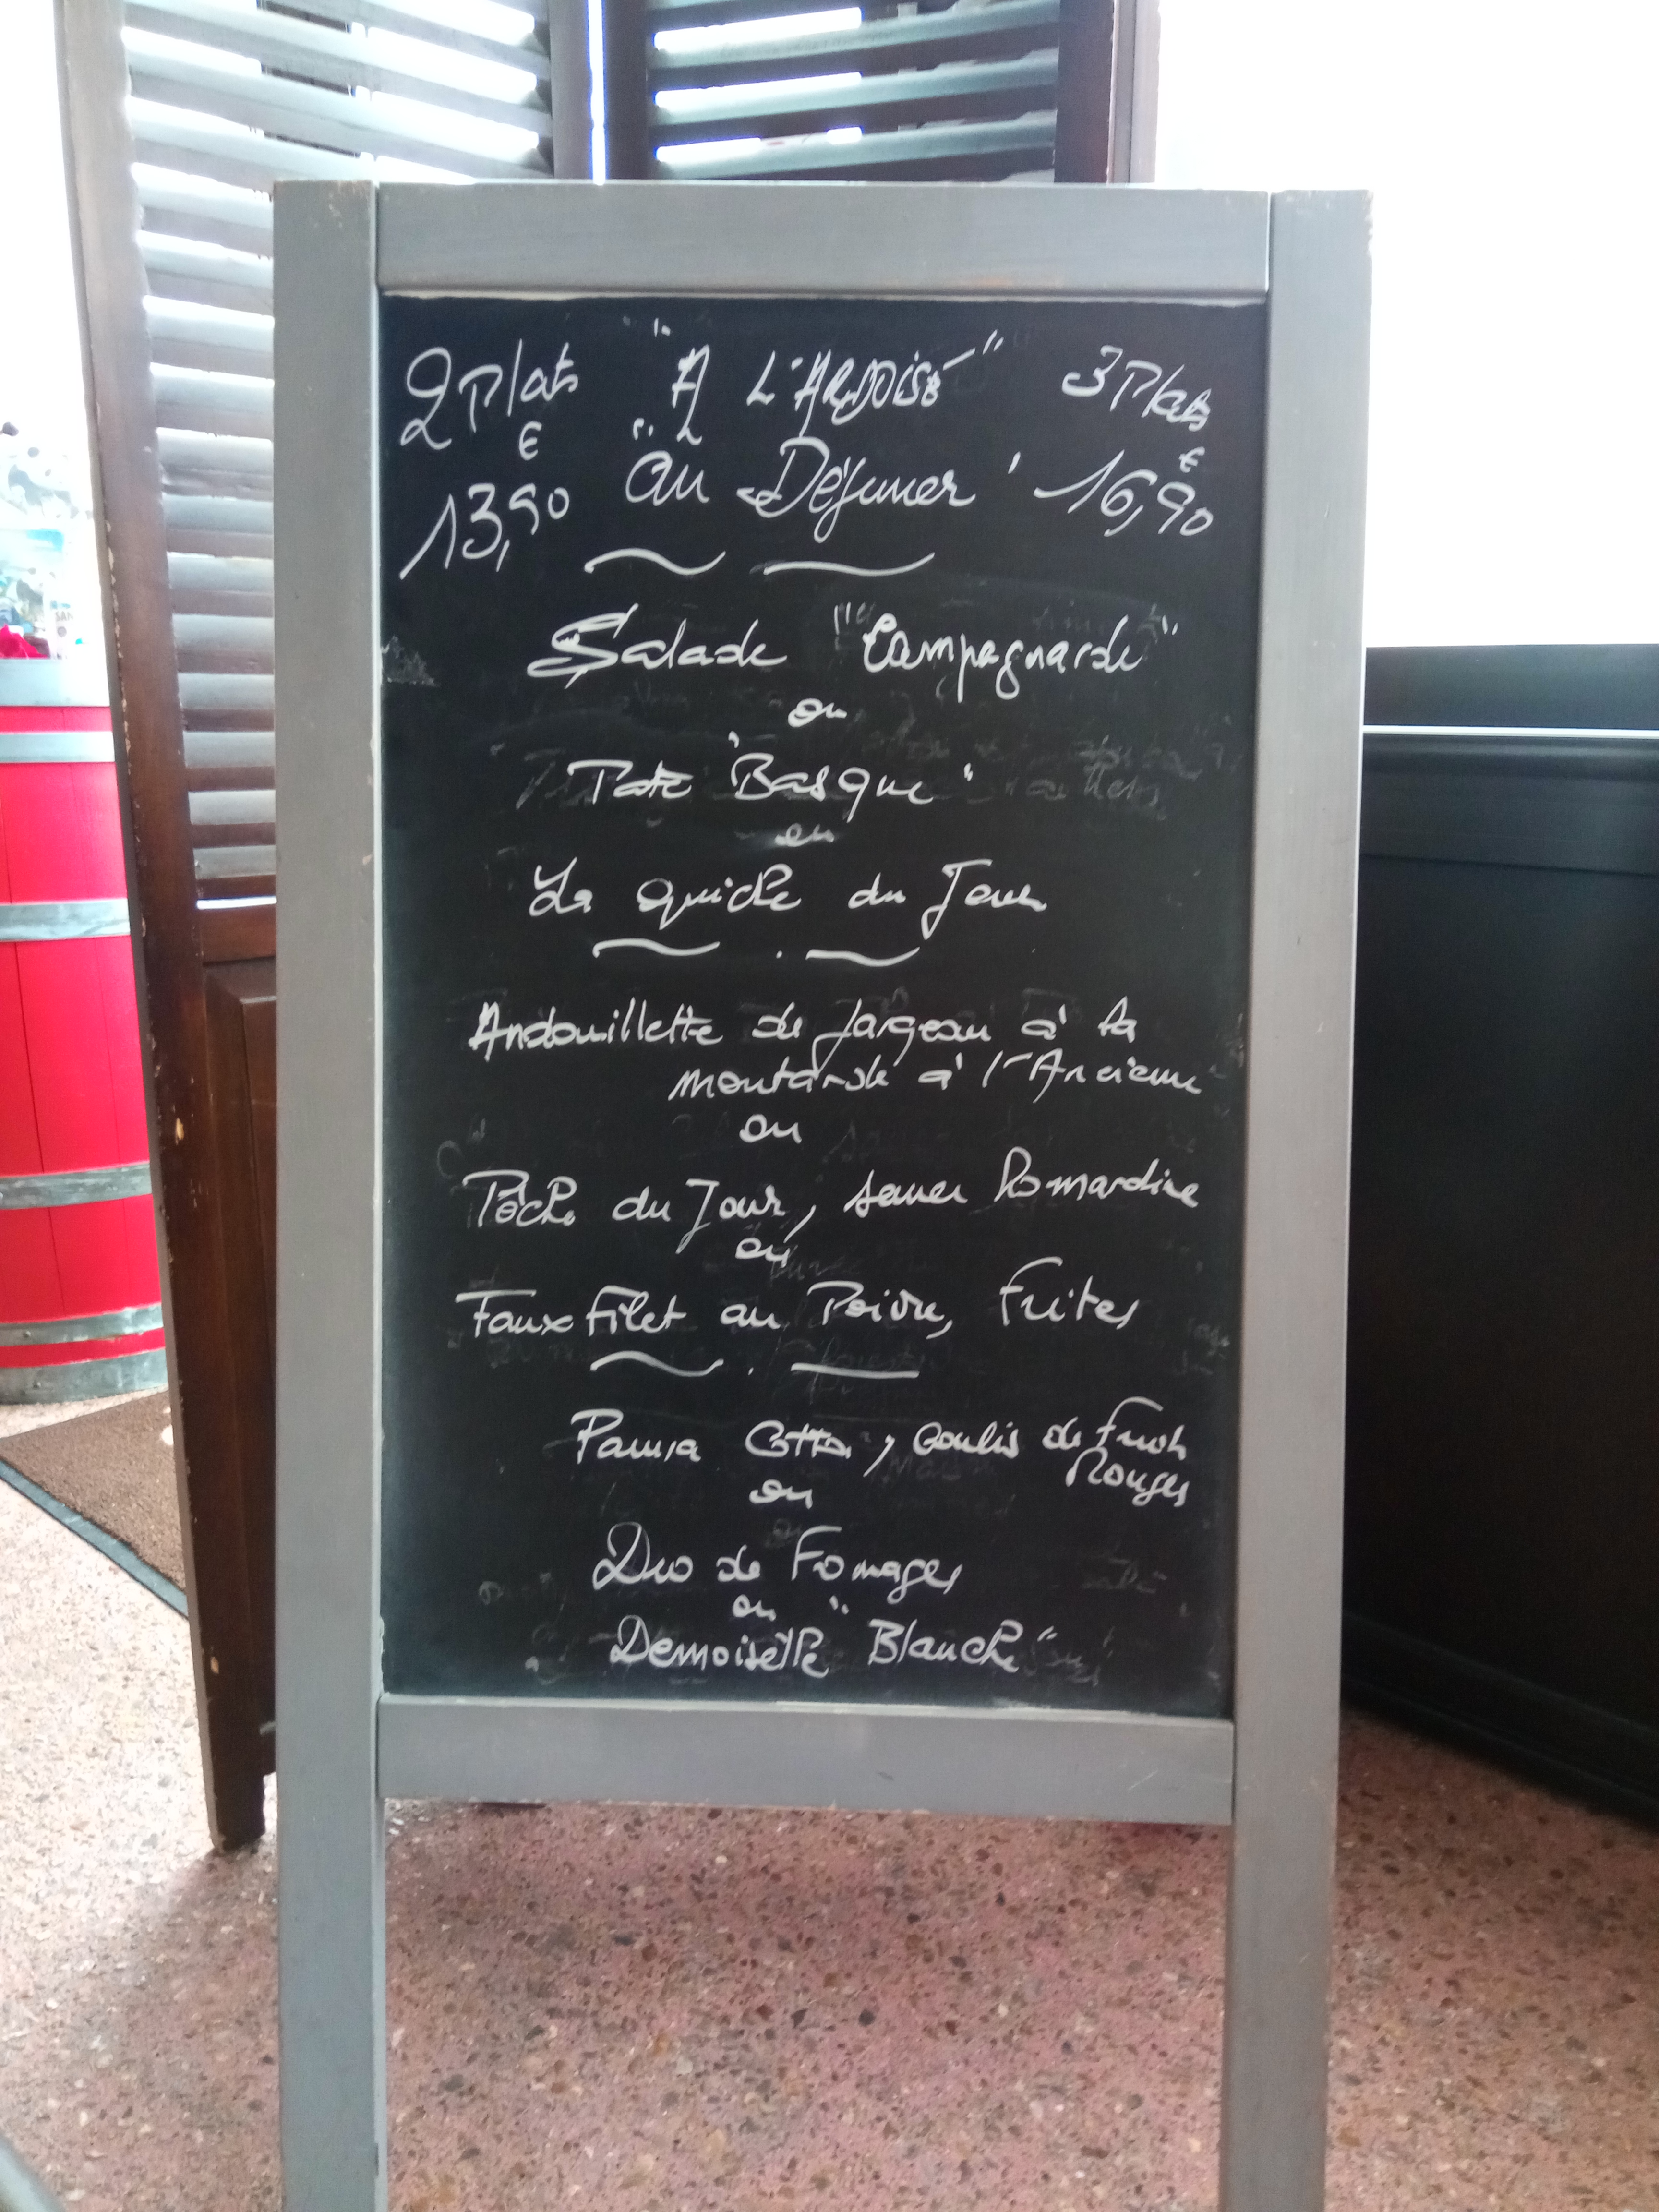 2 Plats "A L'ARDOISE" 3 Plats
€ €
13,90 "au Déjeuner" 16,90
Salade "Campagnarde"
ou
Paté "Basque"
ou
La quiche du Jour
Andouillette de Jargeau à la
moutarde à l'Ancienne
ou
Pêche du Jour, sauce
ou
Faux Filet au Poivre, Frites
Panna Cotta, coulis de Fruits
Rouges
ou
Duo de Fromages
ou
Demoiselle "Blanche"